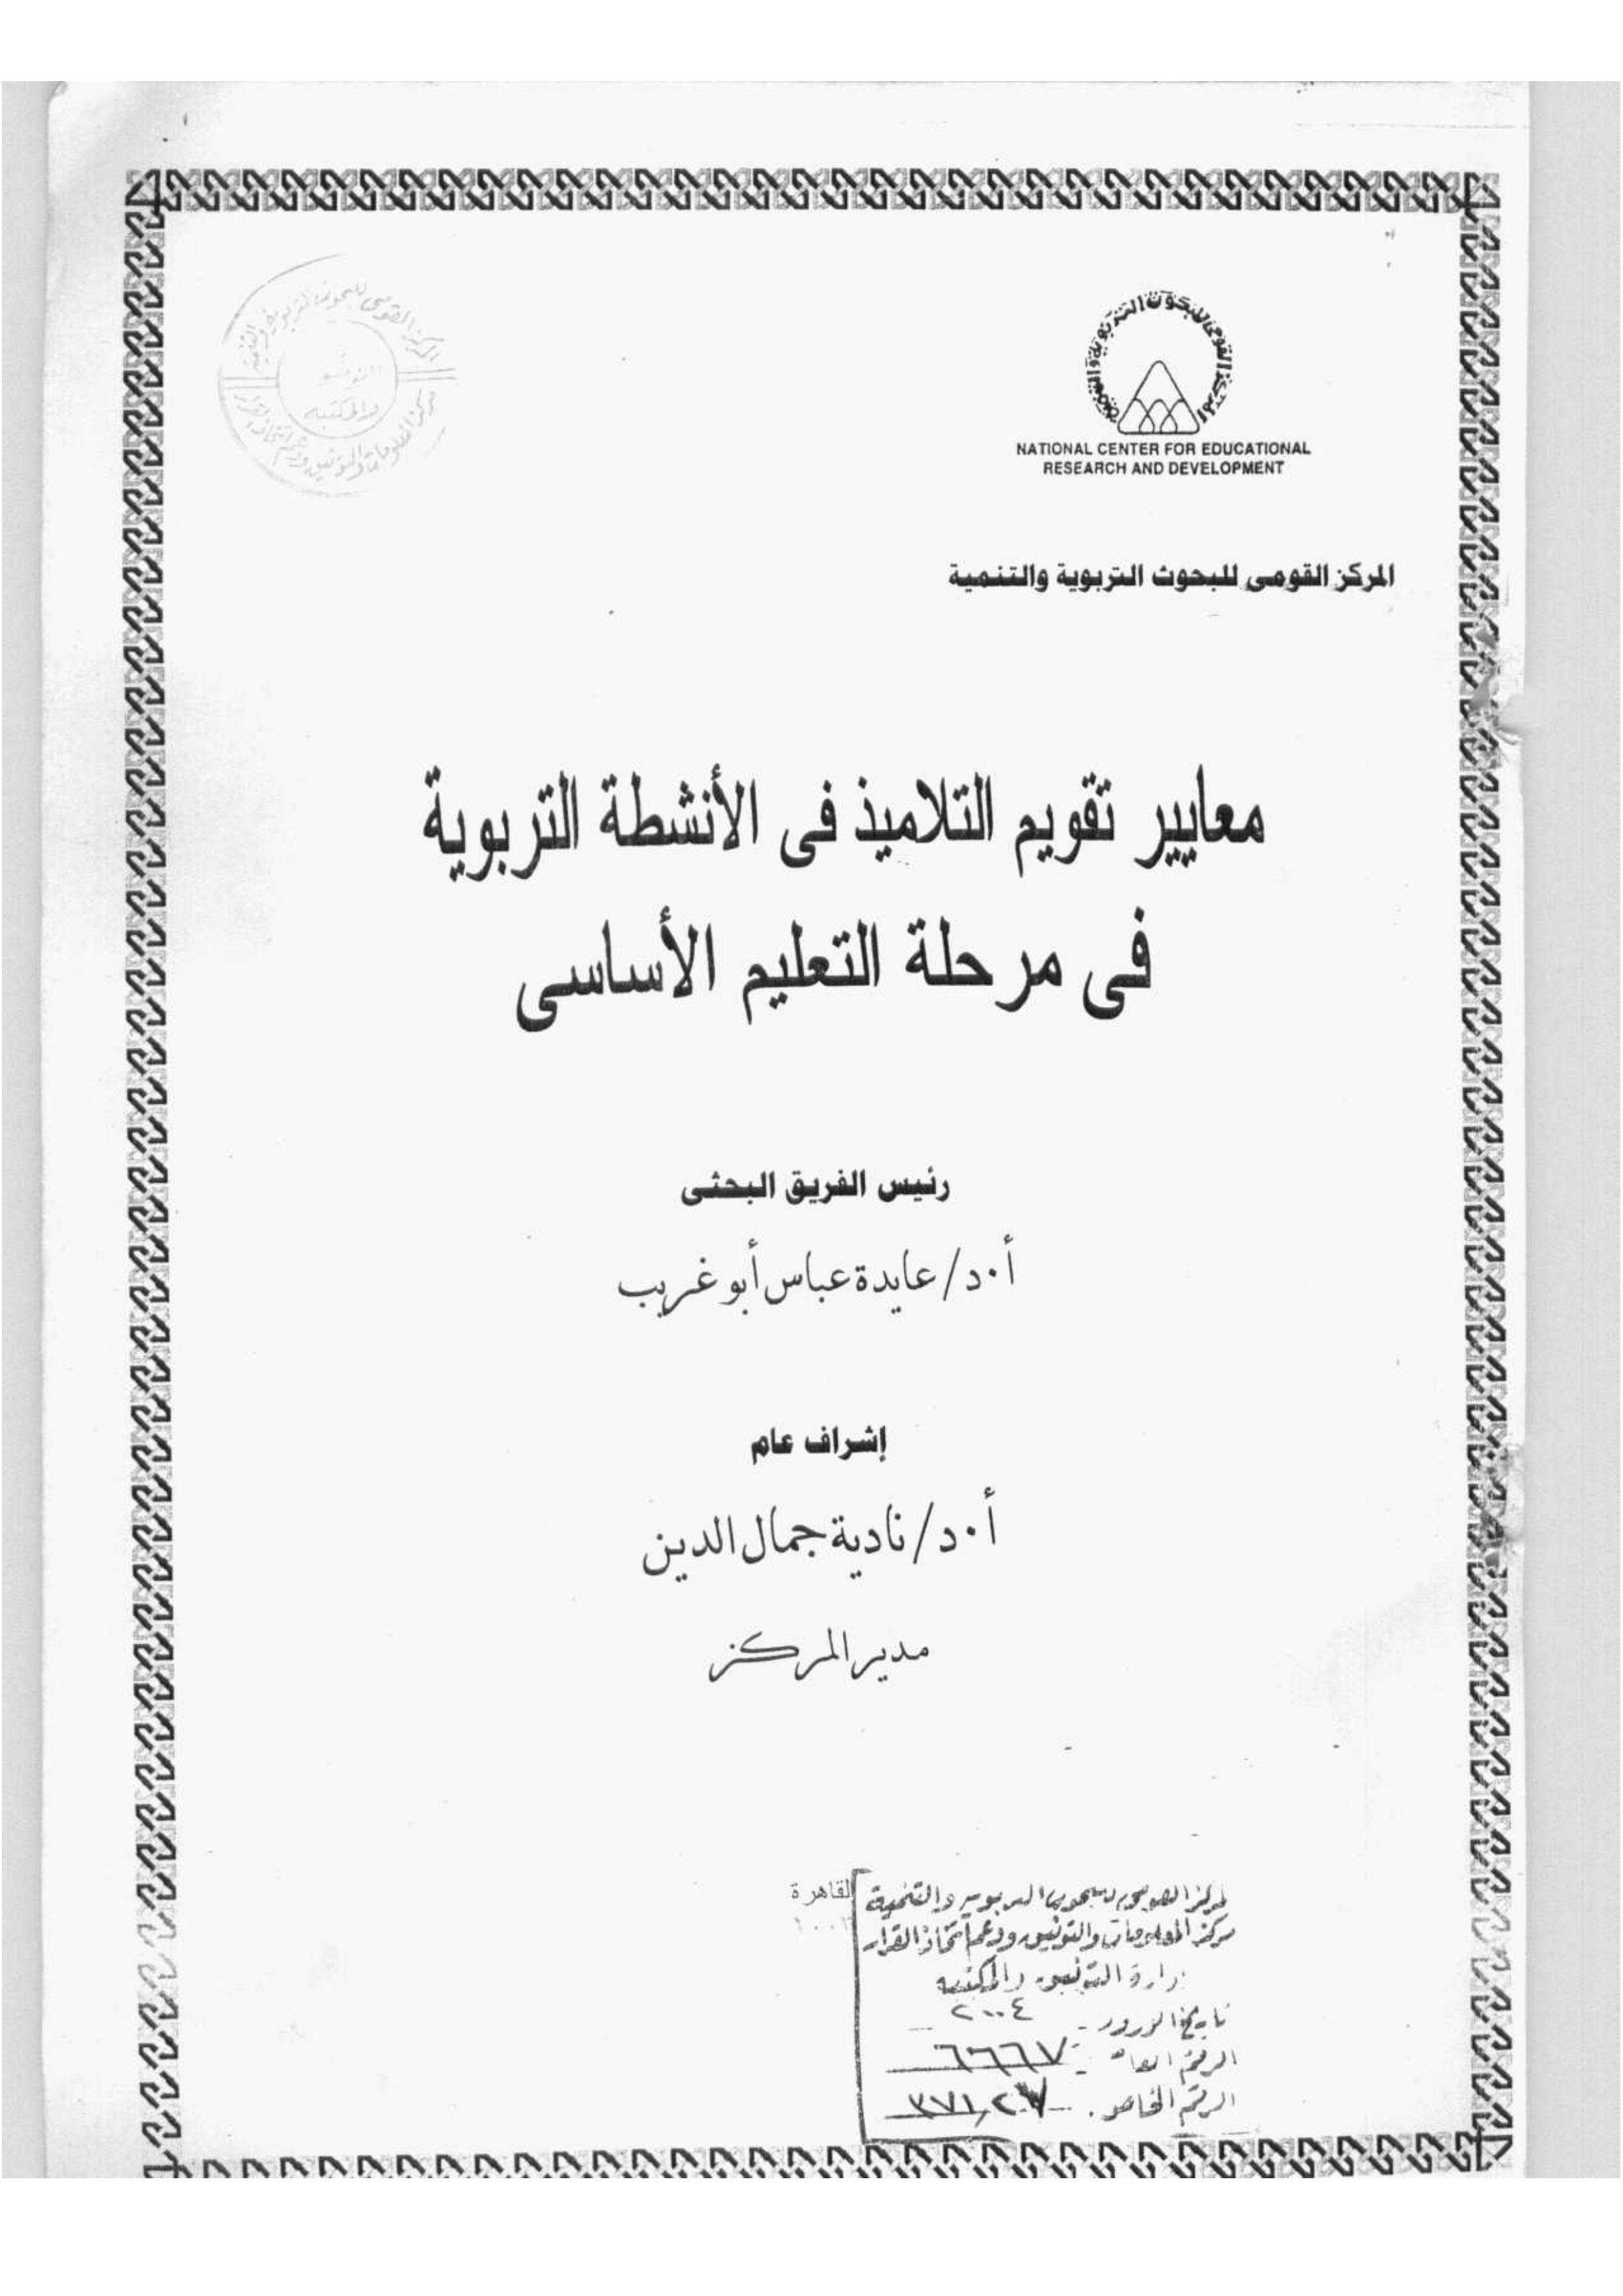 المركز القومى للبحوث التربوية والتنمية
NATIONAL CENTER FOR EDUCATIONAL
RESEARCH AND DEVELOPMENT
المركز القومى للبحوث التربوية والتنمية
معايير تقويم التلاميذ فى الأنشطة التربوية
فى مرحلة التعليم الأساسى
رئيس الفريق البحثى
أ.د/ عايدة عباس أبو غريب
إشراف عام
أ.د/ نادية جمال الدين
مدير المركز
القاهرة
المركز القومى للبحوث التربوية والتنمية
مركز المعلومات والتوثيق ودعم اتخاذ القرار
إدارة التوثيق والمكتبة
تاريخ الورود - ٢٠٠٤
الرقم العام - ٦٦٦٧
الرقم الخاص .